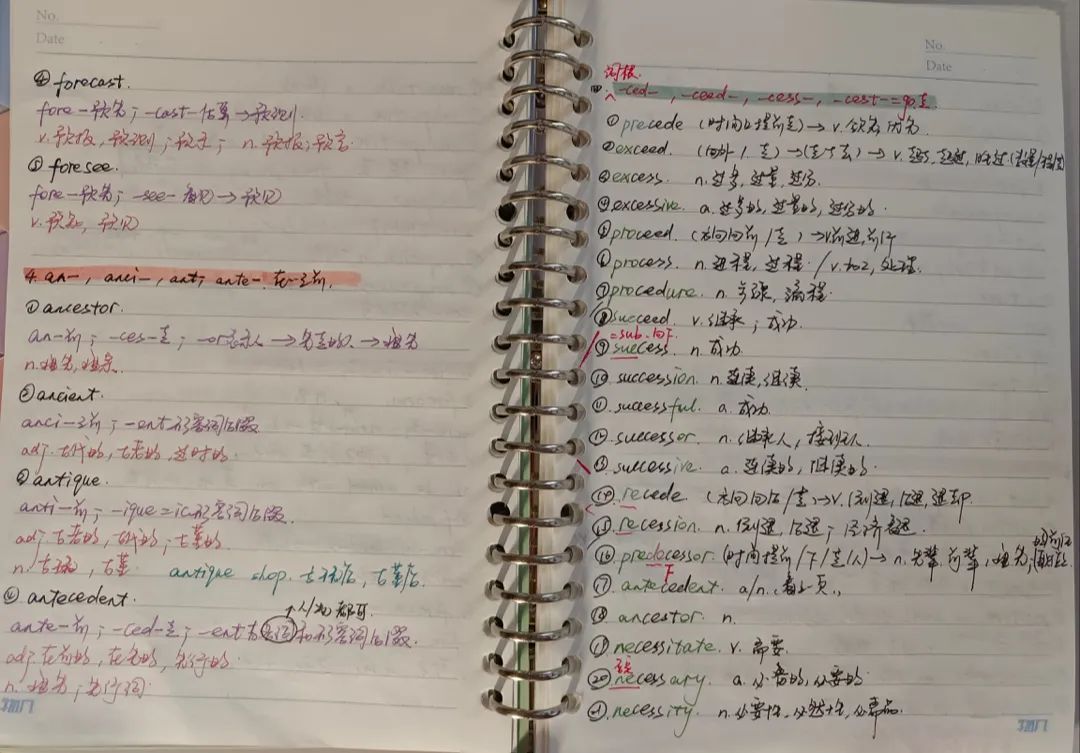 No.
Date
④ forecast.
fore-预先; -cast-估算→预测
v.预报,预测;预示; n.预报;预言.
⑤ foresee.
fore-预先; -see-看见→预见
v.预知,预见
4. an-, anci-, ant-, ante-. 在…之前.
① ancestor.
an-前; -ces-走; -or表示人→先走的人→祖先
n.祖先,祖宗.
② ancient.
anci-之前; -ent形容词后缀
adj.古代的,古老的,过时的.
③ antique.
anti-前; -ique=ic形容词后缀.
adj.古老的,古代的;古董的
n.古玩,古董 antique shop.古玩店,古董店.
↑人/物都可.
④ antecedent.
ante-前; -ced-走; -ent为名词和形容词后缀.
adj.在前的,在先的,先行的
n.祖先;先行词
No.
Date
词根.
-ced-, -ceed-, -cess-, -cest-=go,走.
① precede (时间上提前走)→v.领先,优先.
② exceed. (向外/走)→(走出去)→v.超出,超过,胜过(数量/程度)
③ excess. n.过多,过量,过分.
④ excessive. a.过多的,过量的,过分的.
⑤ proceed. (方向向前/走)→v.前进,前行
⑥ process. n.进程,过程./v.加工,处理.
⑦ procedure. n.步骤,流程.
⑧ succeed. v.继承;成功.
=sub.向下.
⑨ success. n.成功.
⑩ succession. n.连续,继续.
⑪ successful. a.成功
⑫ successor. n.继承人,接班人.
⑬ successive. a.连续的,继续的.
⑭ recede. (方向向后/走)→v.倒退,后退,退却.
⑮ recession. n.倒退,后退;经济衰退.
⑯ predecessor.(时间提前/下/走/人)→n.先辈,前辈,祖先;
下
⑰ antecedent. a/n.(看上页.)
⑱ ancestor. n.
⑲ necessitate. v.需要.
⑳ necessary. a.必需的,必要的.
㉑ necessity. n.必要性,必然性,必需品.